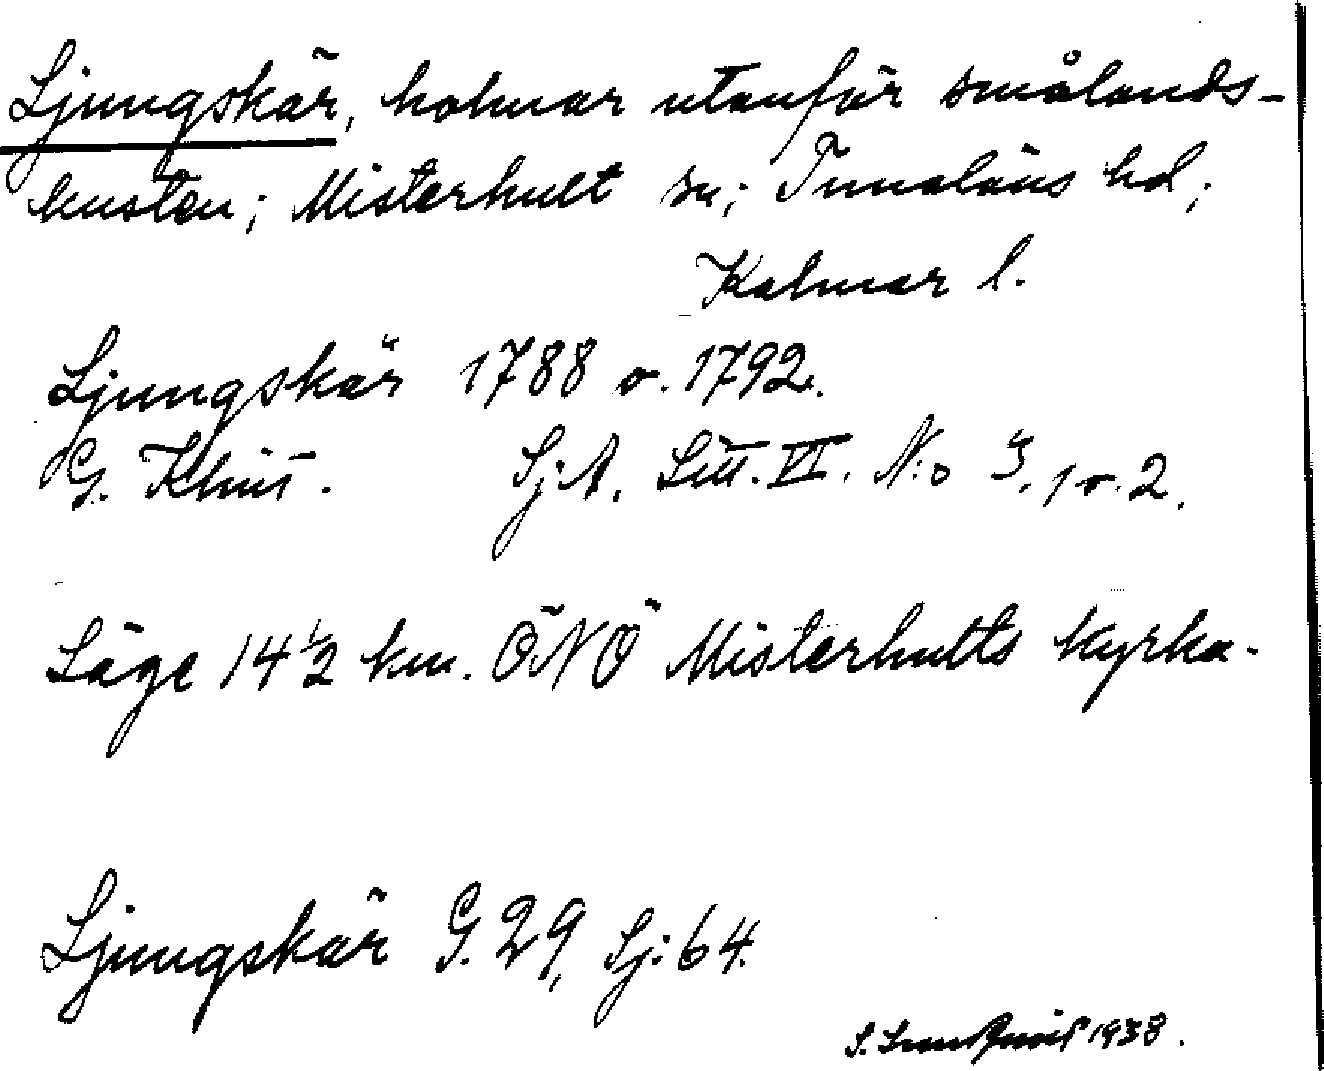 Ljungskär, holmar utanför smålands-
kusten; Misterhult sn; Tunaläns hd;
Kalmar l.
Ljungskär 1788 o. 1792.
G. Klint. Sj.A. Litt. VI. N:o 3, 1 o. 2.
Läge 14 1/2 km. ÖNÖ Misterhults kyrka.
Ljungskär G. 29, Sj: 64.
S. 1938.